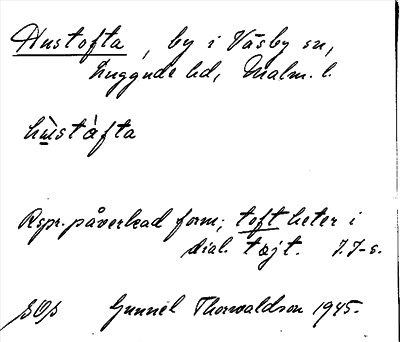 Hustofta, by i Väsby sn,
Luggude hd, Malm. l.
hùstáfta
Rspr. påverkad form; toft heter i
dial. tojt. J.J-s.
SOS Gunnel Thorwaldson 1945.